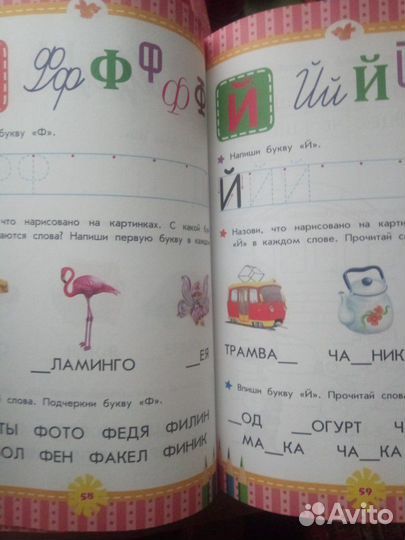 Ф Ф
букву «Ф».
что нарисовано на картинках. С какой
слова? Напиши первую букву в
__ЛАМИНГО __ЕЯ
слова. Подчеркни букву «Ф».
ФОТО ФЕДЯ ФИЛИН
ФЕН ФАКЕЛ ФИНИК
58
Й Йй Й
Напиши букву «Й».
Й
Назови, что нарисовано на
«Й» в каждом слове. Прочитай
ТРАМВА__ ЧА__НИК
Впиши букву «Й». Прочитай
__ОД __ОГУРТ
МА__КА ЧА__КА
59
Avito